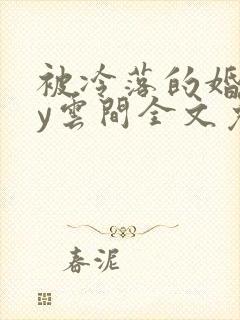 被冷落的婚
y雲間全文
春泥